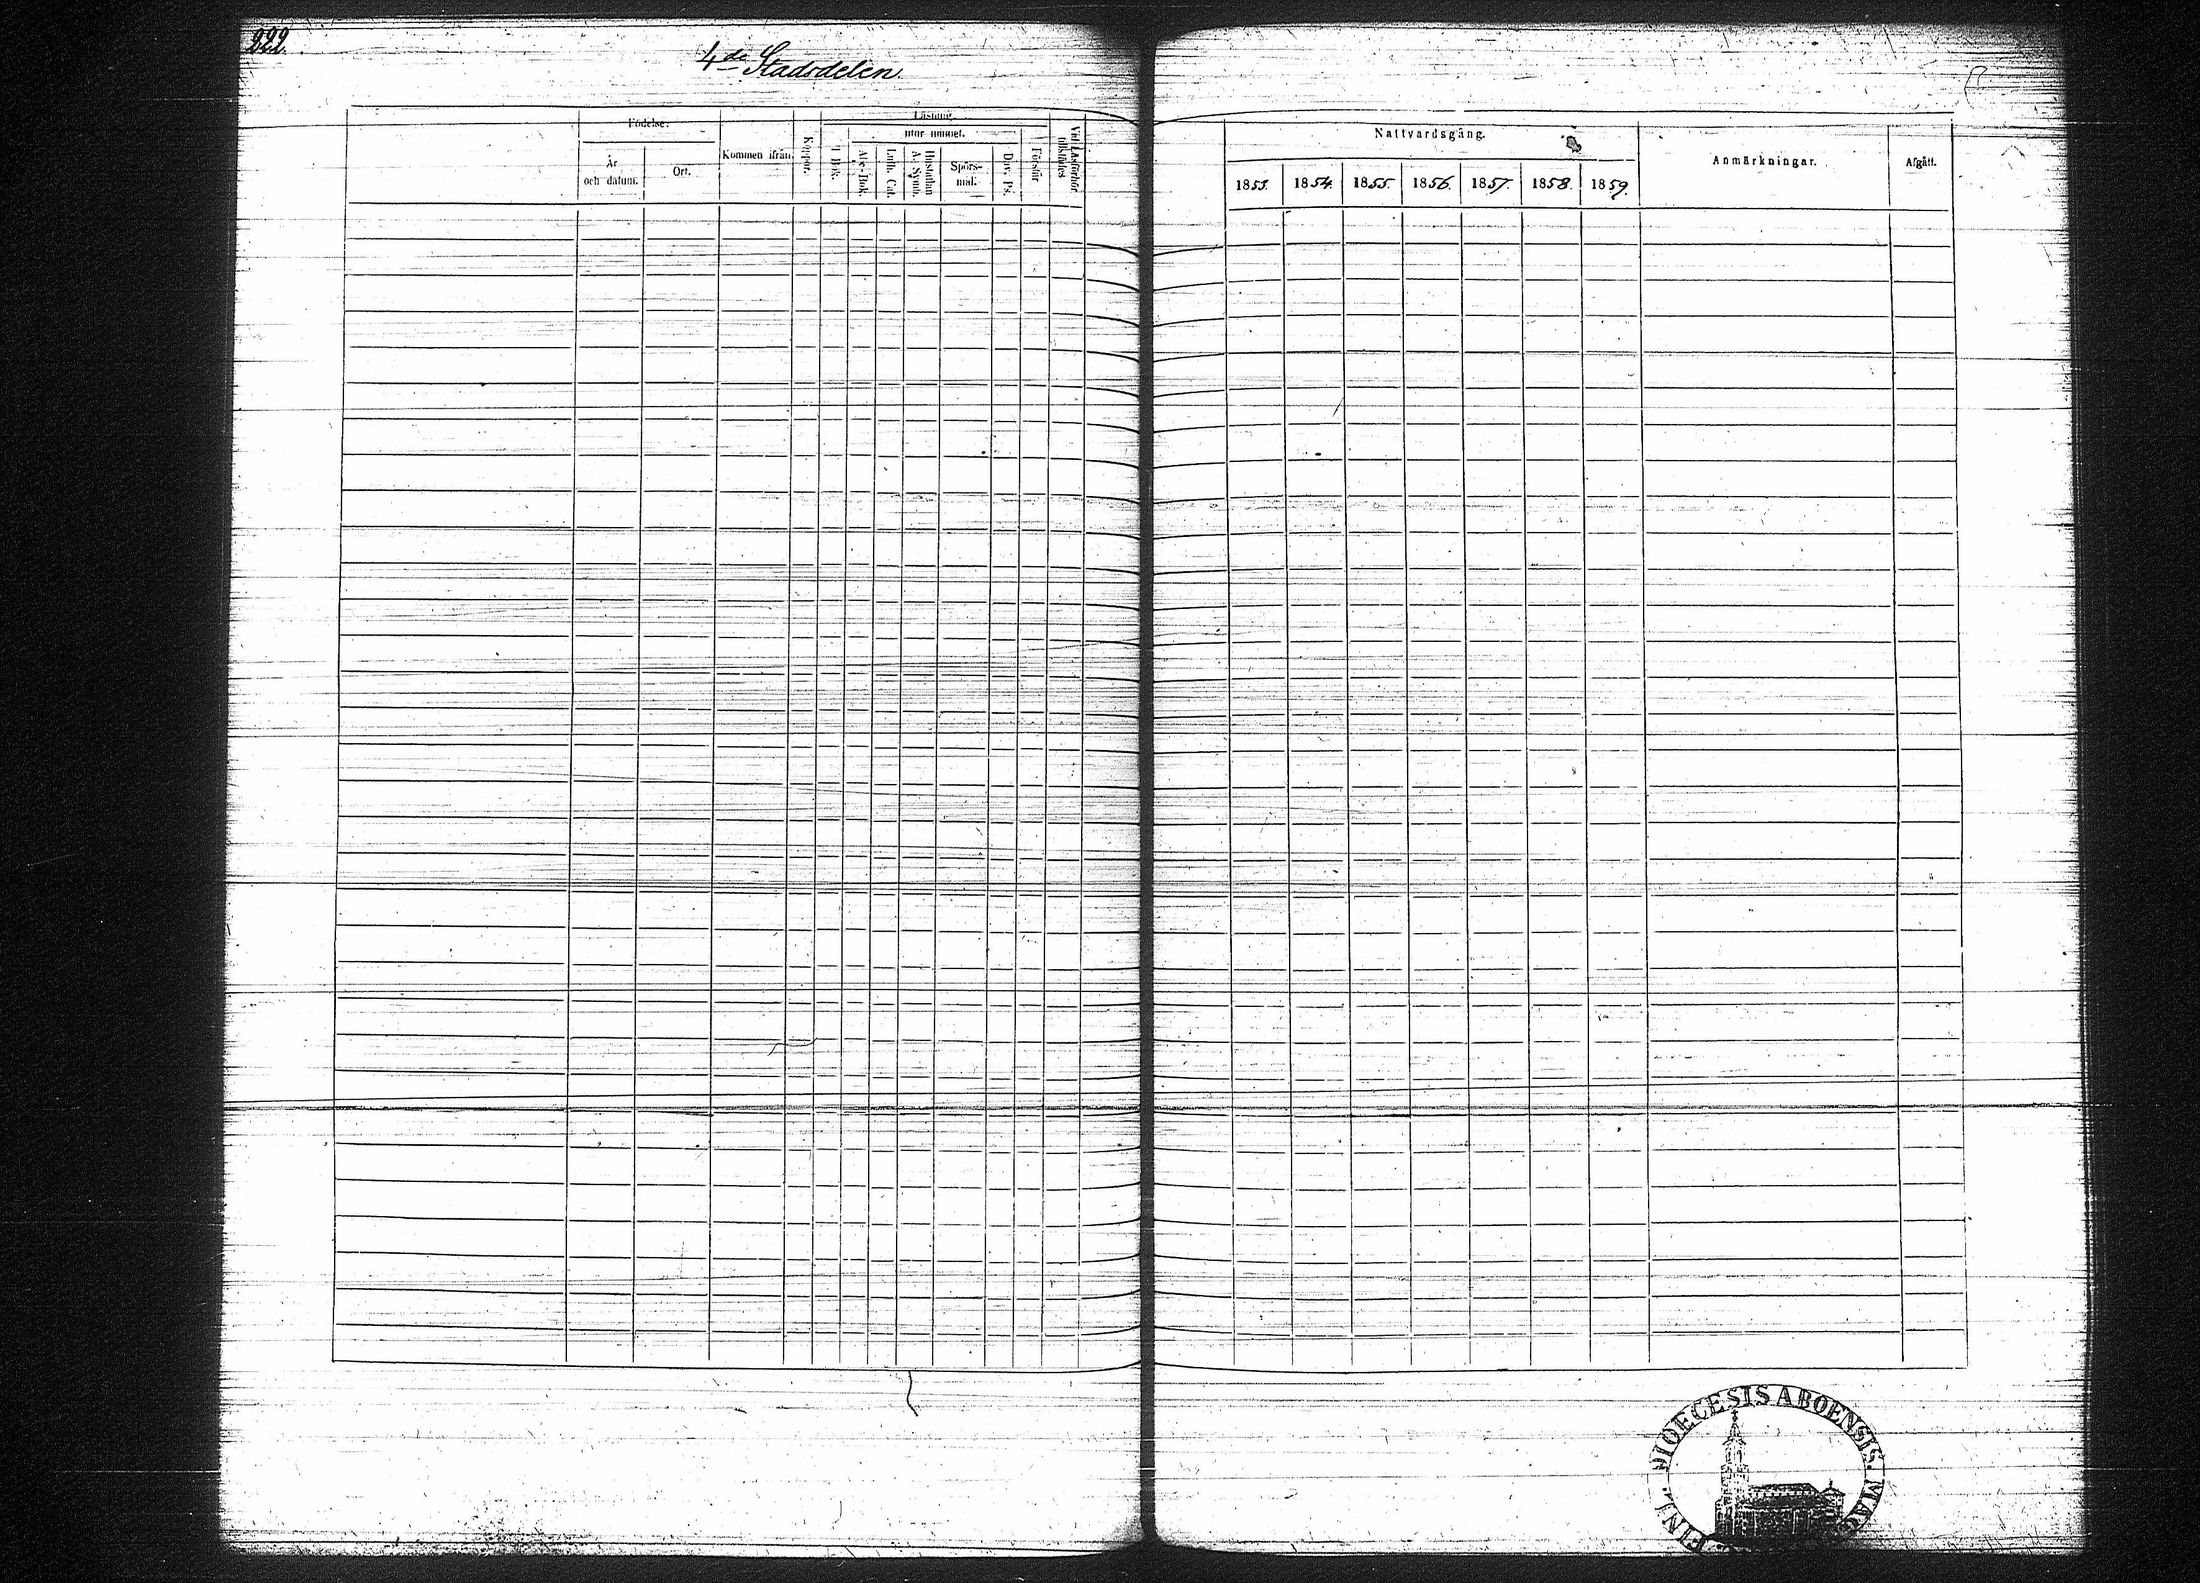 222.
4de Stadsdelen.
Födelse:
År och datum.
Ort.
Kommen ifrån.
Koppor.
Läsning
I Bok.
utur minnet.
Abc-Bok.
Luth. Cat.
Hustaflan A. Symb.
Spörsmål.
Dav. Ps.
Förstår
Vid Läsförhör tillstädes
Nattvardsgång.
1853. 1854. 1855. 1856. 1857. 1858. 1859.
Anmärkningar.
Afgått.
DIOECESIS ABOENSIS. MAG
FINL.